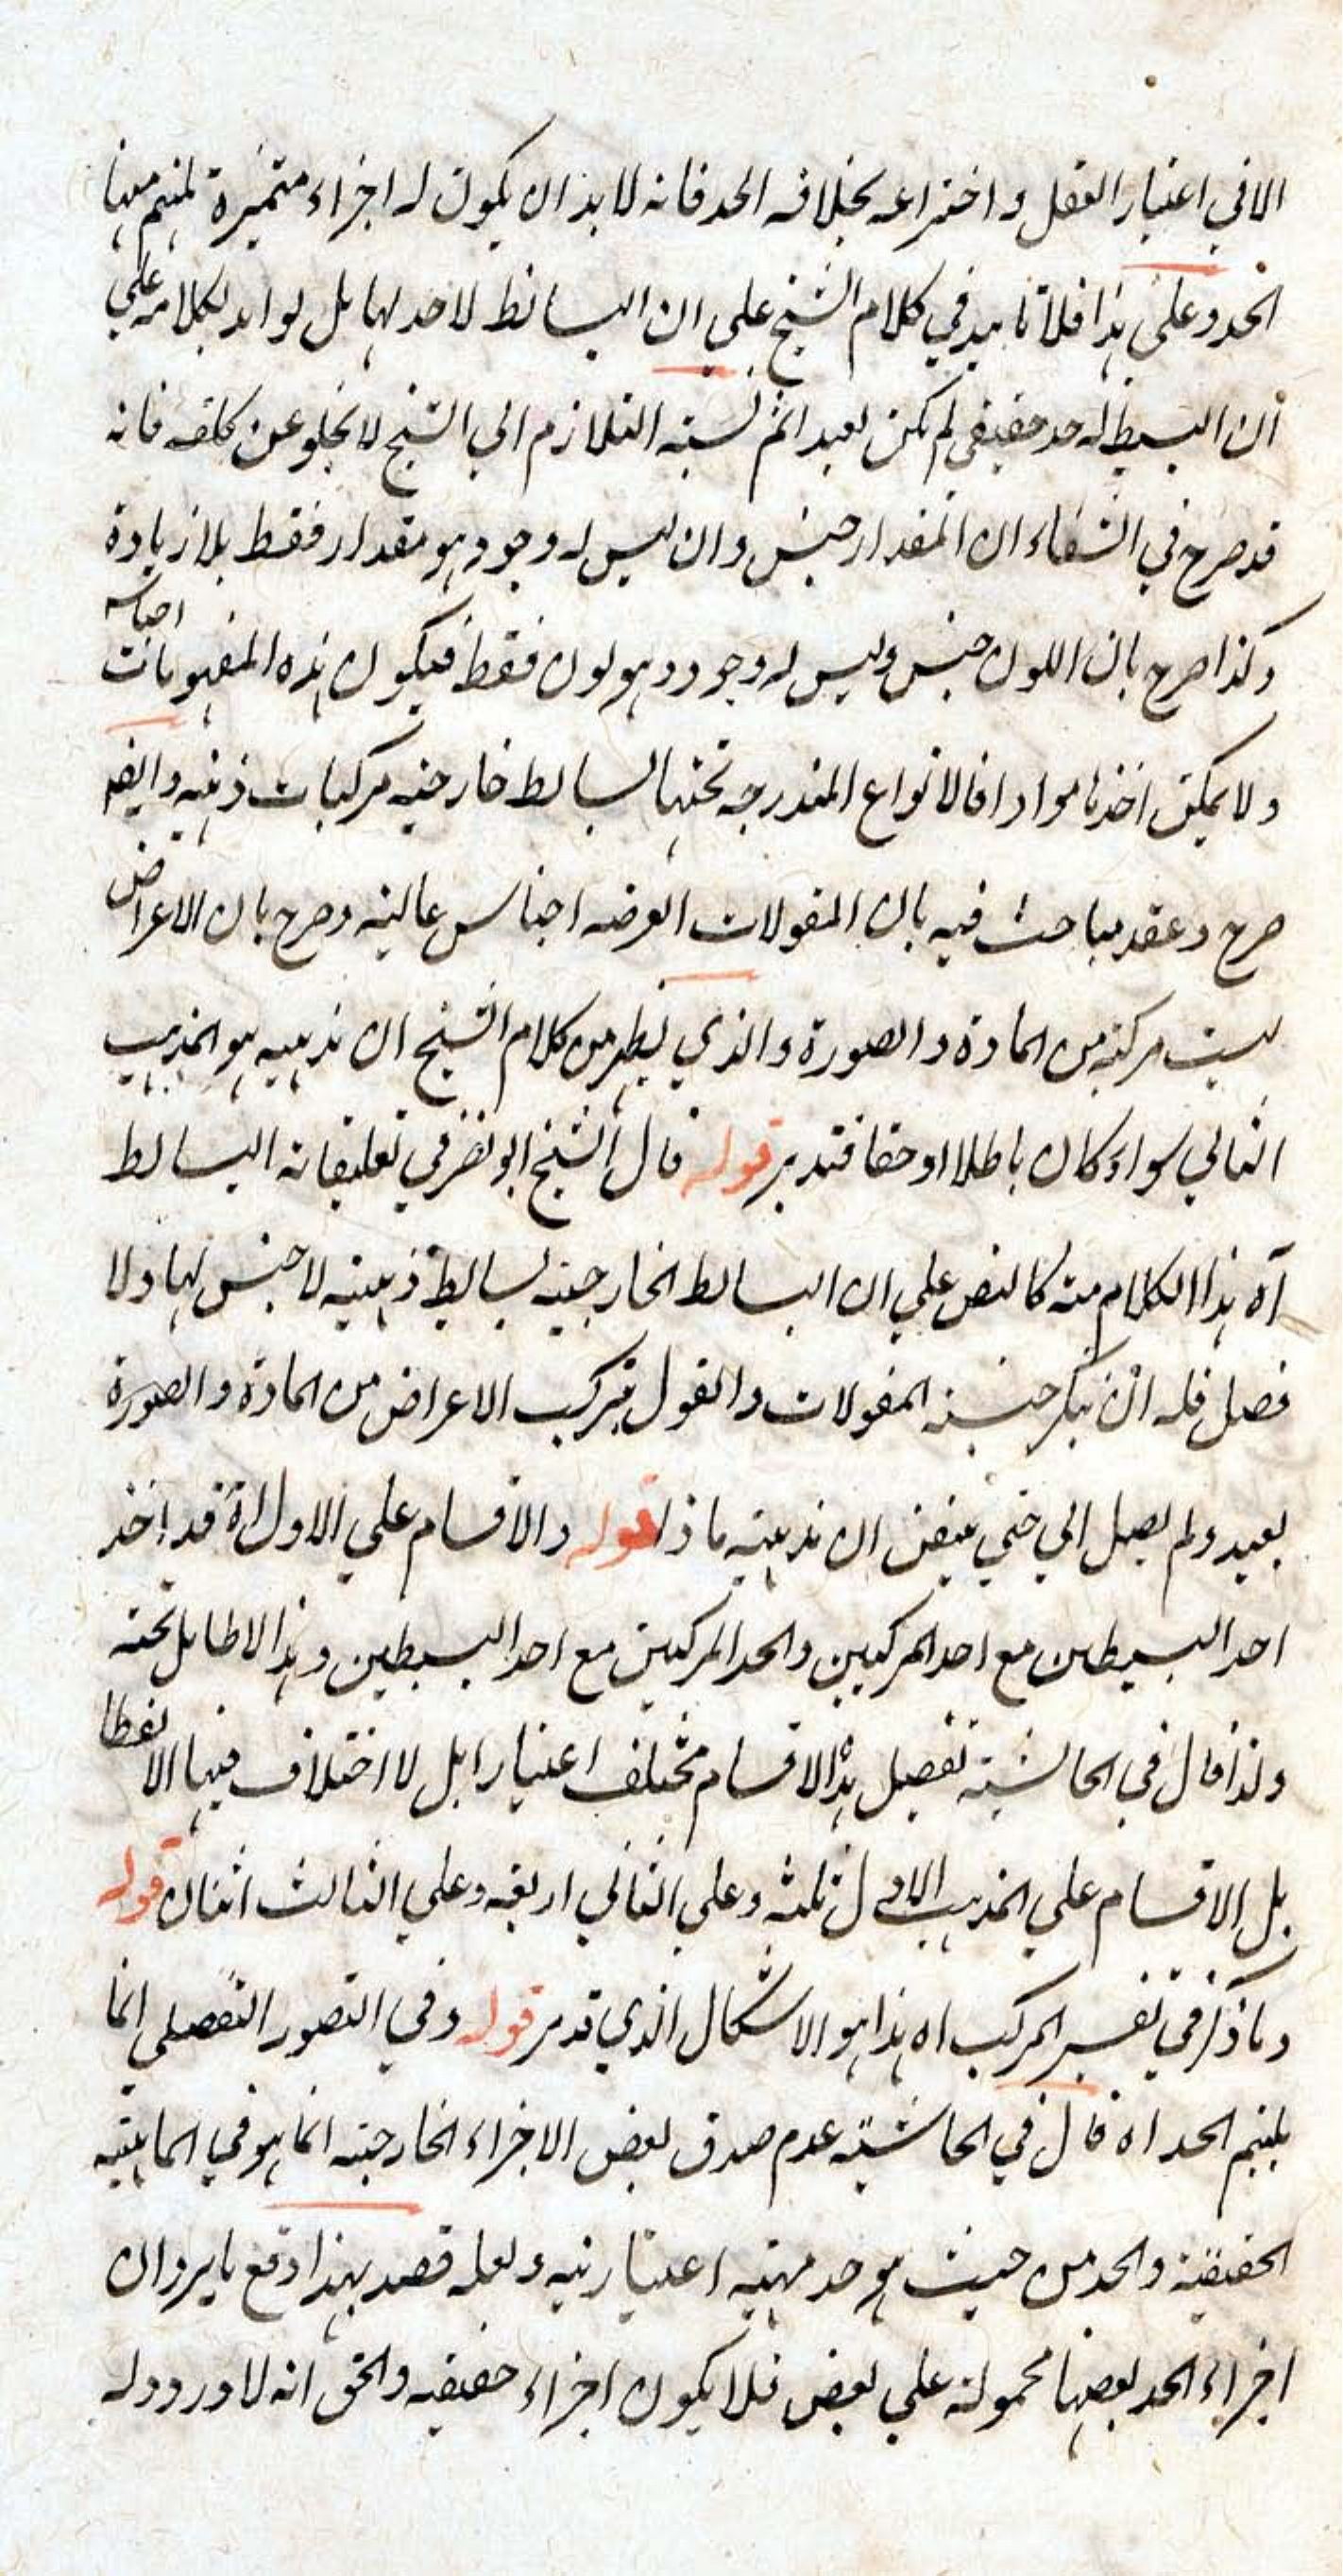 الا في اعتبار العقل و اختراعه بخلاف الحد فانه لا بد ان يكون له اجزاء متميزة يلتئم منها
الحد وعلى هذا فلا تاييد في كلام الشيخ على ان البسائط لا حد لها بل لو ايد بكلامه على
ان البسيط له حد حقيقي لم يكن بعيدا ثم نسبة التلازم الى الشيخ لا يخلو عن كلفه فانه
قد صرح في الشفاء ان المقدار جنس وان ليس له وجود هو مقدار فقط بلا زيادة
وكذا صرح بان اللون جنس وليس له وجود هو لون فقط فيكون هذه المفهومات اجناسا
ولا يمكن اخذها موادا فالانواع المندرجه تحتها بسائط خارجيه مركبات ذهنيه وايضا
صرح و عقد مباحث فيه بان المقولات العرضيه اجناس عاليه وصرح بان الاعراض
ليست مركبه من المادة و الصورة والذي يظهر من كلام الشيخ ان مذهبه هو المذهب
الثاني سواء كان باطلا او حقا فتدبر قوله قال الشيخ ابو نصر في تعليقاته البسائط
آه هذا الكلام منه كالنص على ان البسائط الخارجيه بسائط ذهنيه لا جنس لها ولا
فصل فله ان ينكر جنسية المقولات والقول بتركب الاعراض من المادة والصورة
بعيد ولم يصل الي حتى يتيقن ان مذهبه ماذا قوله والاقسام على الاول اه قد اخذ
احد البسيطين مع احد المركبين والحد المركبين مع احد البسيطين وهذا لا طايل تحته
ولذا قال في الحاشية تفصيل هذا الاقسام مختلف اعتبارا بل لا اختلاف فيها الا لفظا
بل الاقسام على المذهب الاول ثلثه وعلى الثاني اربعه وعلى الثالث اثنان قوله
وما ذكر في تفسير المركب اه هذا هو الاشكال الذي قد مر قوله وفي التصور التفصيلي انما
يلتئم الحد اه قال في الحاشية عدم صدق بعض الاجزاء الخارجيه انما هو في الماهيه
الحقيقية والحد من حيث هو حد مهيه اعتباريه ولعله قصد بهذا دفع ما يرد ان
اجزاء الحد بعضها محمولة على بعض فلا يكون اجزاء حقيقيه والحق انه لا ورود له